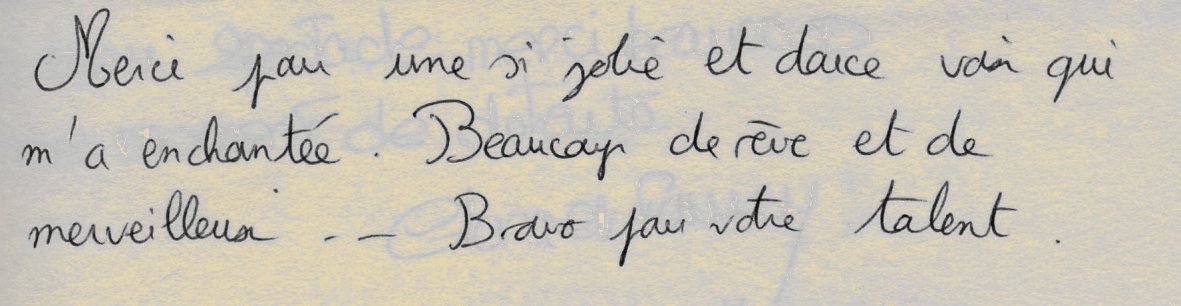 Merci pour une si jolie et douce voix qui
m'a enchantée. Beaucoup de rêve et de
merveilleux... Bravo pour votre talent.